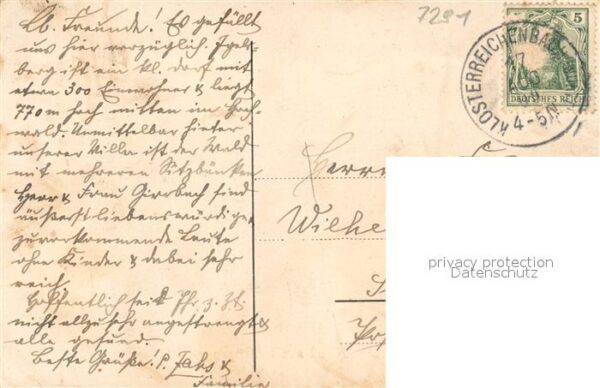 Lb. Freunde! Es gefällt
uns hier vorzüglich. Igels-
berg ist ein kl. Dorf mit
etwa 300 Einwohner & liegt
770 m hoch mitten im Hoch-
wald. Unmittelbar hinter
unserer Villa ist der Wald
mit mehreren Sitzbänken
Herr & Frau Girrbach sind
äußerst liebenswürdige,
zuvorkommende Leute
ohne Kinder & dabei sehr
reich.
Hoffentlich seid Ihr z. Zt.
nicht allzusehr angestrengt &
alle gesund.
Beste Grüße! P. &
Familie
7291
5
DEUTSCHES REICH
KLOSTERREICHENBACH
17
4-5N
Herrn
Wilhe
privacy protection
Datenschutz